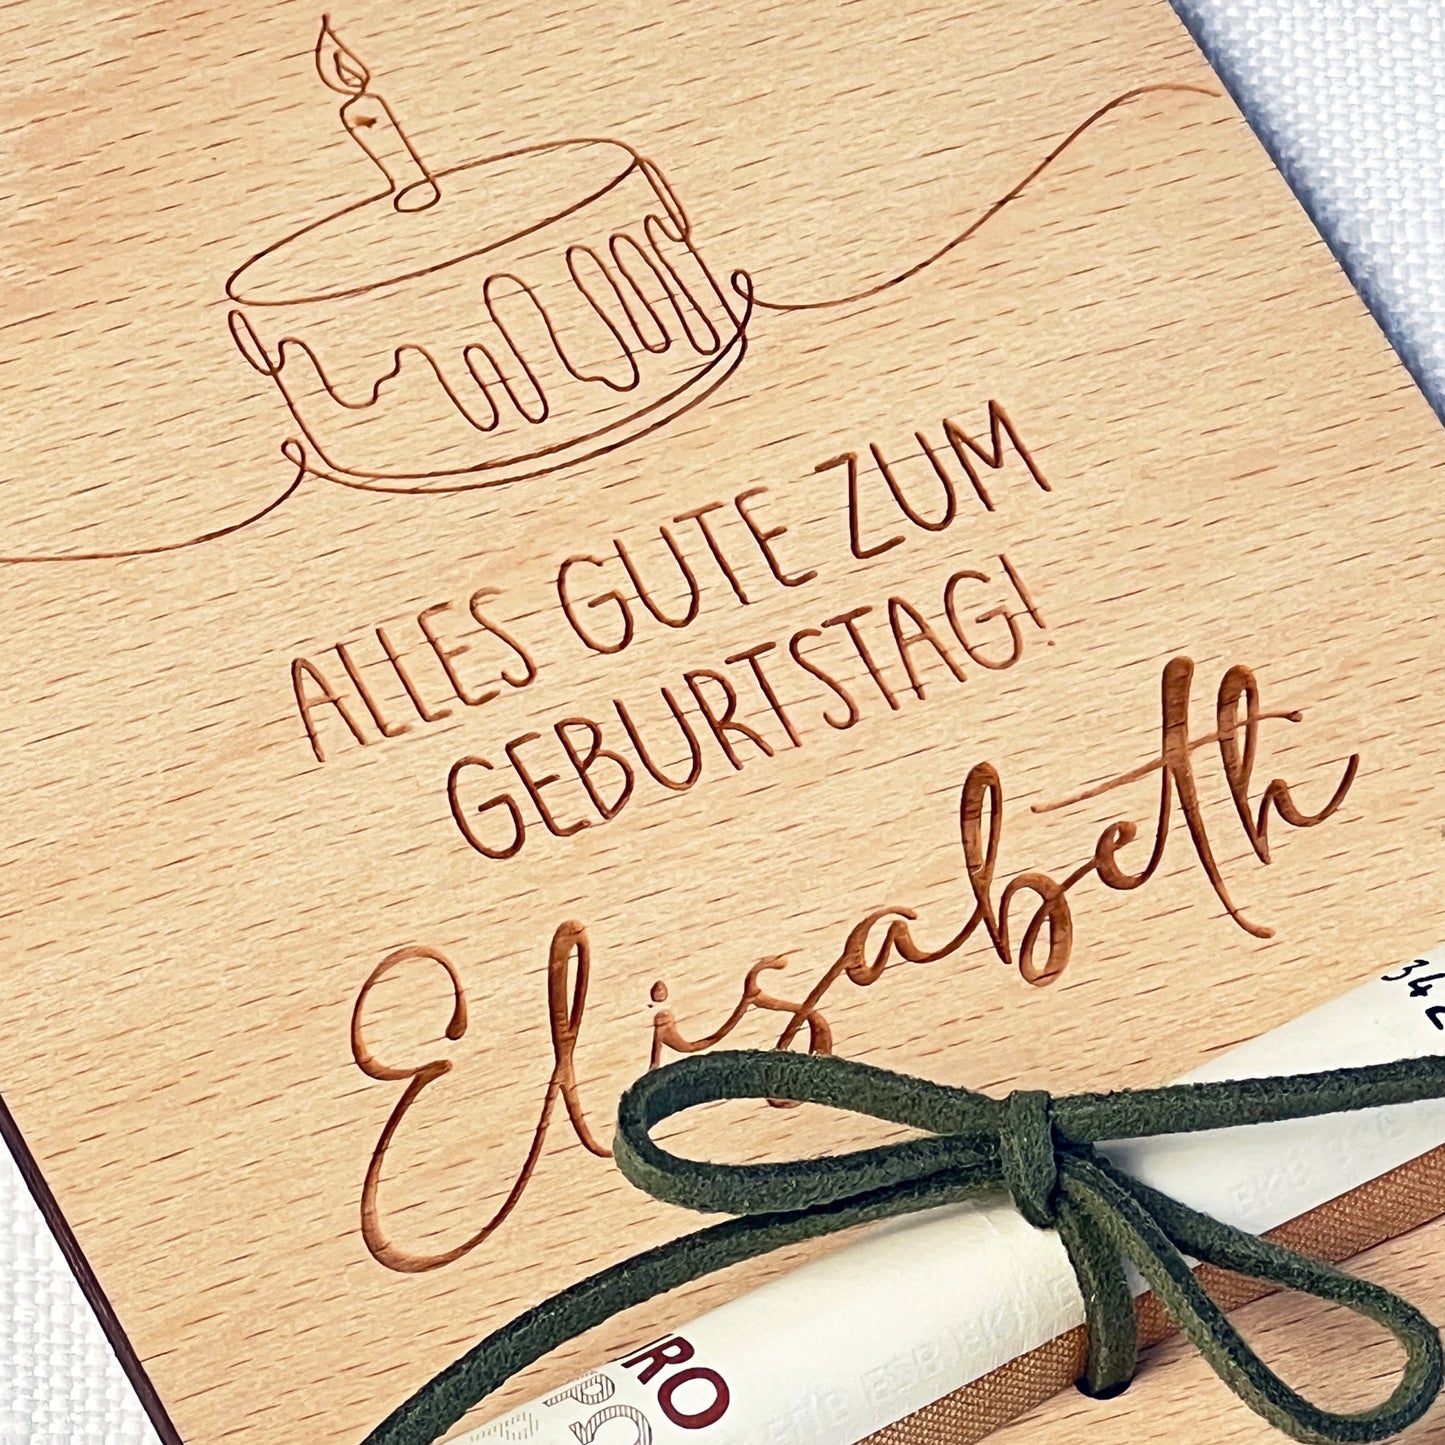 ALLES GUTE ZUM
GEBURTSTAG!
Elisabeth